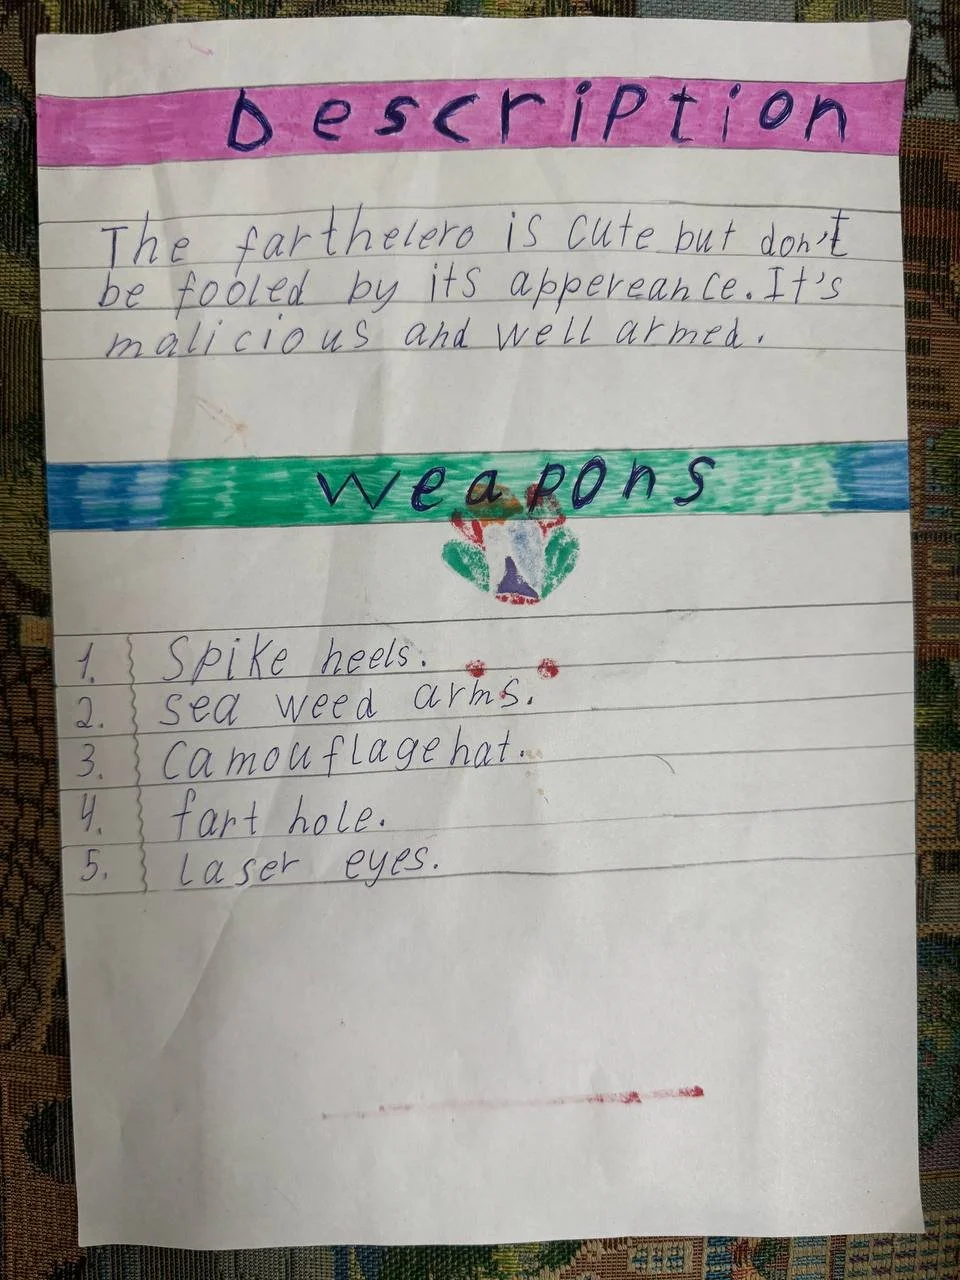 Description
The farthelero is cute but don't
be fooled by its appereance. It's
malicious and well armed.
weapons
1. Spike heels.
2. sea weed arms.
3. camouflage hat.
4. fart hole.
5. laser eyes.